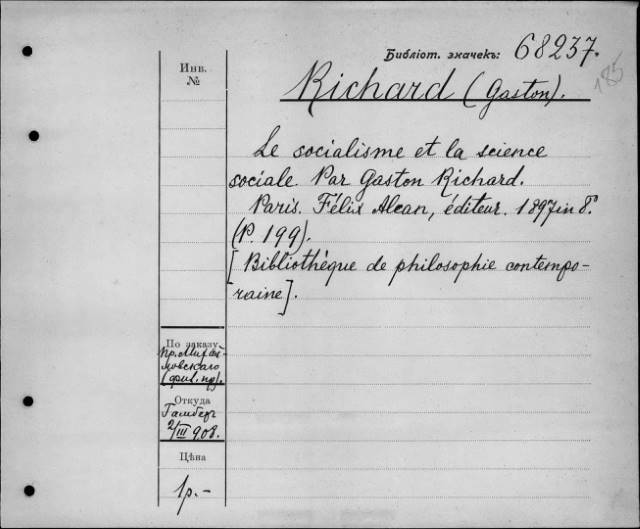 Библіот. значекъ: 68237.
185
Инв.
№
Richard (Gaston).
Le socialisme et la science
sociale. Par Gaston Richard.
Paris. Félix Alcan, éditeur. 1897 in 8°.
(P. 199).
[Bibliothèque de philosophie contempo-
raine].
По заказу
Пр. Михай-
ловскаго
(фил. пр).
Откуда
Гамбер
2/III 908.
Цѣна
1р.-